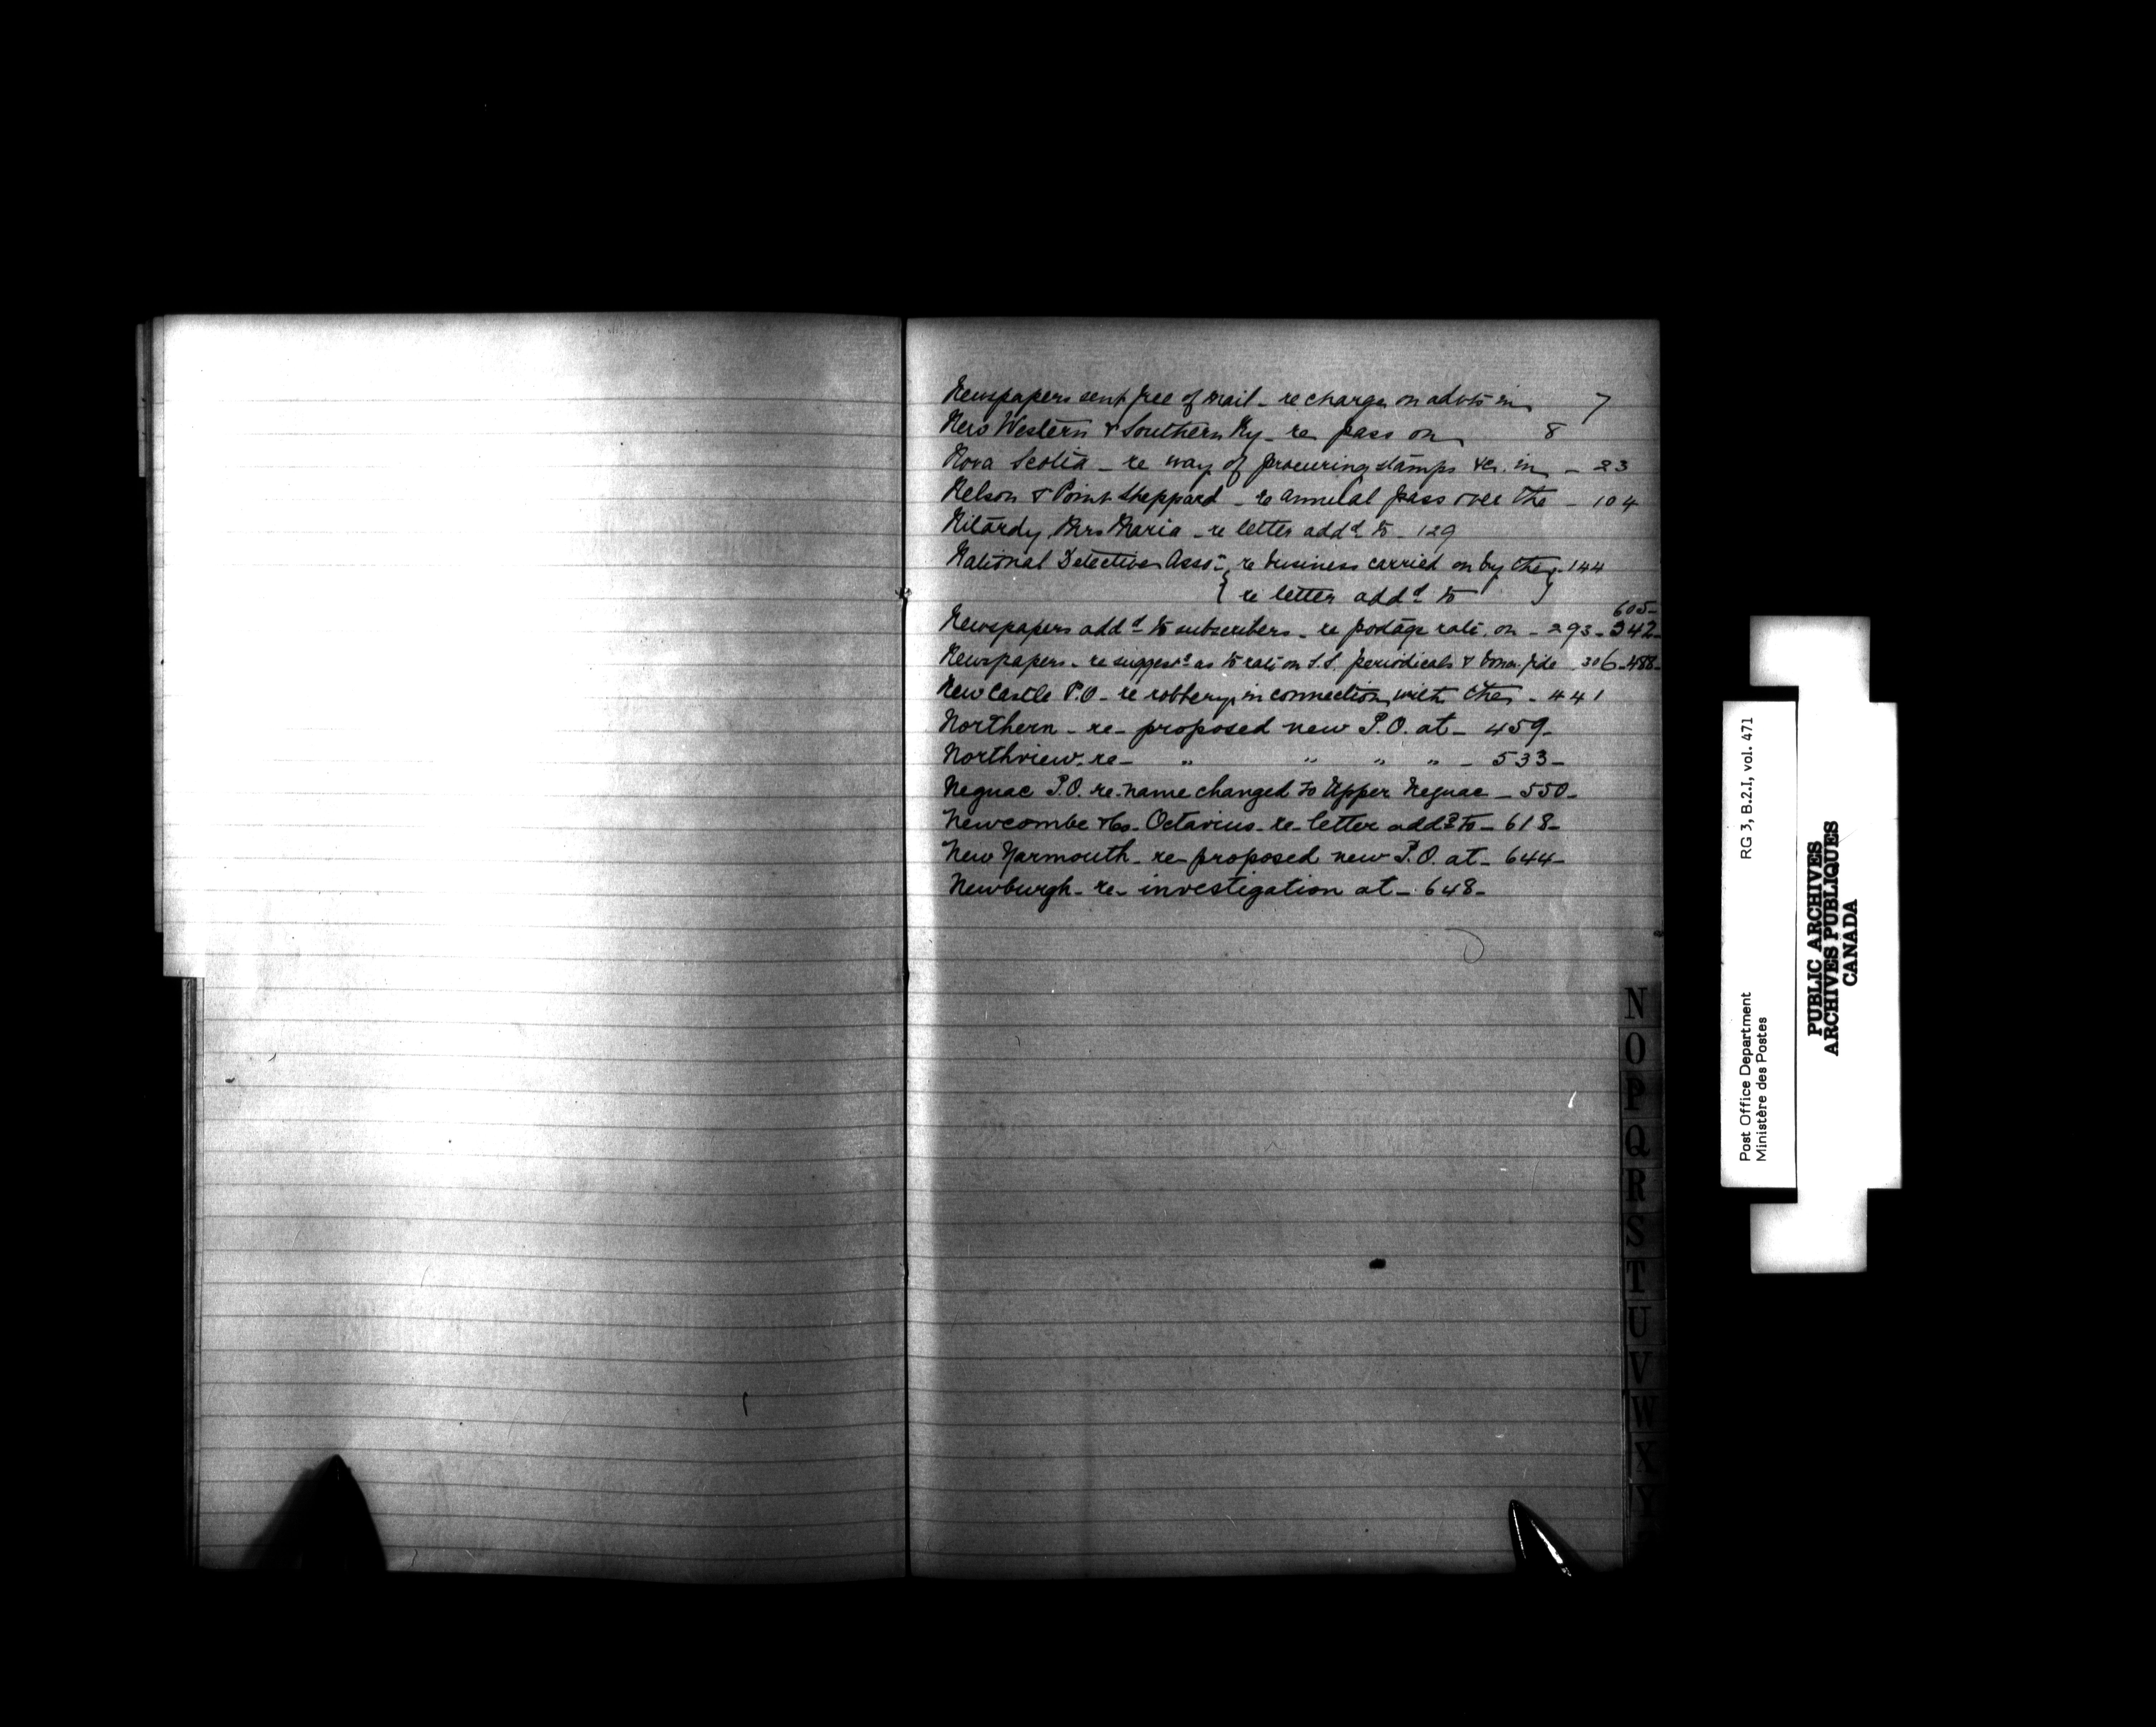 Newspapers sent free of mail - re charge on advts in 7
New Western & Southern Ry - re pass on 8
Nova Scotia - re way of procuring stamps &c. in - 23
Nelson & Point Sheppard - re annual pass over the - 104
Nilardy, Mrs Maria - re letter addd to - 129
National Detective Asso - { re business carried on by the } - 144
{ re letter addd to }
605-
Newspapers addd to subscribers - re postage rate on - 293 - 342-
Newspapers - re suggest as to rate on S.S. periodicals & bona-fide 306-488-
New Castle P.O - re robbery in connection with the - 441
Northern - re - proposed new P.O. at - 459-
Northview - re - " " " " - 533-
Neguac P.O. re - name changed to Upper Neguac - 550-
Newcombe & Co - Octavius - re - letter addd to - 618-
New Yarmouth - re proposed new P.O. at - 644-
Newburgh - re - investigation at - 648-
N
O
P
Q
R
S
T
U
V
W
X
Y
Post Office Department RG 3, B.2.I, vol. 471
Ministère des Postes
PUBLIC ARCHIVES
ARCHIVES PUBLIQUES
CANADA